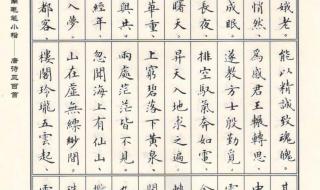 娥老。
悄然
成眠
長夜
曙天
華重
與共
經年
入夢
都客
能以精誠致魂魄。
為感君王輾轉思
遂教方士殷勤覓
排空馭氣奔如電
昇天入地求之遍
上窮碧落下黃泉
兩處茫茫皆不見
忽聞海上有仙山
山在虛無縹緲間
樓閣玲瓏五雲起、
毛筆小楷
唐诗三百首